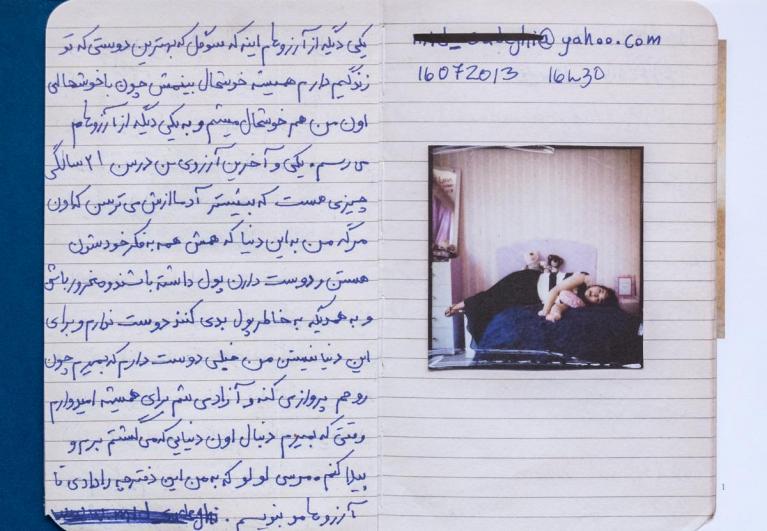 یکی دیگه از آرزوهام اینه که سوگل که بهترین دوستی که تو
زندگیم دارم همیشه خوشحال ببینمش چون با خوشحالی
اون من هم خوشحال میشم و به یکی دیگه از آرزوهام
می رسم. یکی و آخرین آرزوی من در سن ۲۱ سالگی
چیزی هست که بیشتر آدما ازش می ترسن که اون
مرگه من به این دنیا که همش همه به فکر خودشون
هستن و دوست دارن پول داشته باشند و مغرور باشن
و به همدیگه به خاطر پول بدی کنند دوست ندارم و برای
این دنیا نیستن من خیلی دوست دارم که بمیرم چون
روحم پرواز می کنه و آزاد می شم برای همیشه امیدوارم
وقتی که بمیرم دنبال اون دنیایی که می گشتم برم و
پیدا کنم. مرسی لولو که به من این دفترچه را دادی تا
آرزوهامو بنویسم.
@yahoo.com
16072013 16h30
1